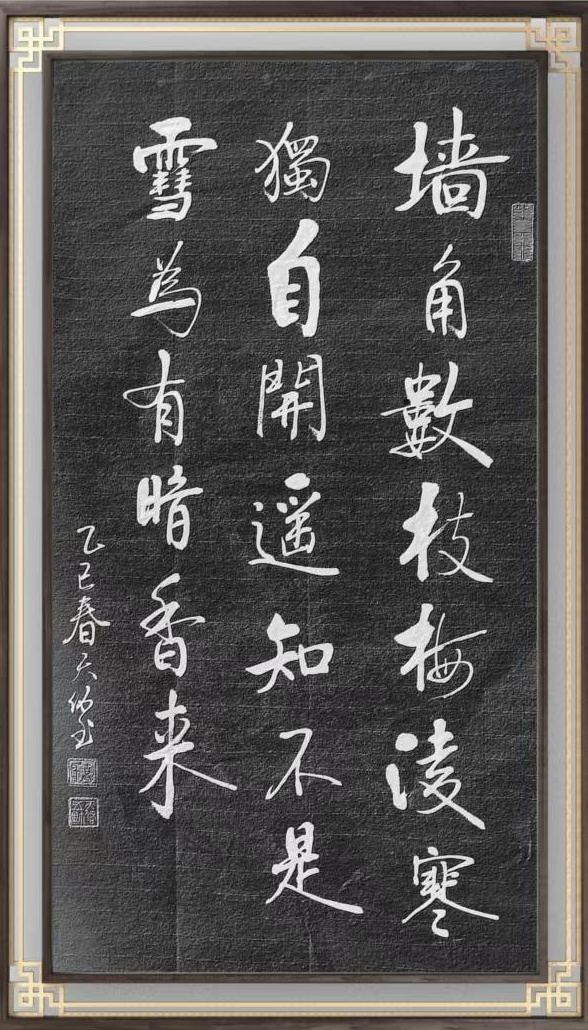 墙角數枝梅凌寒
獨自開遥知不是
雪為有暗香来
乙巳春天